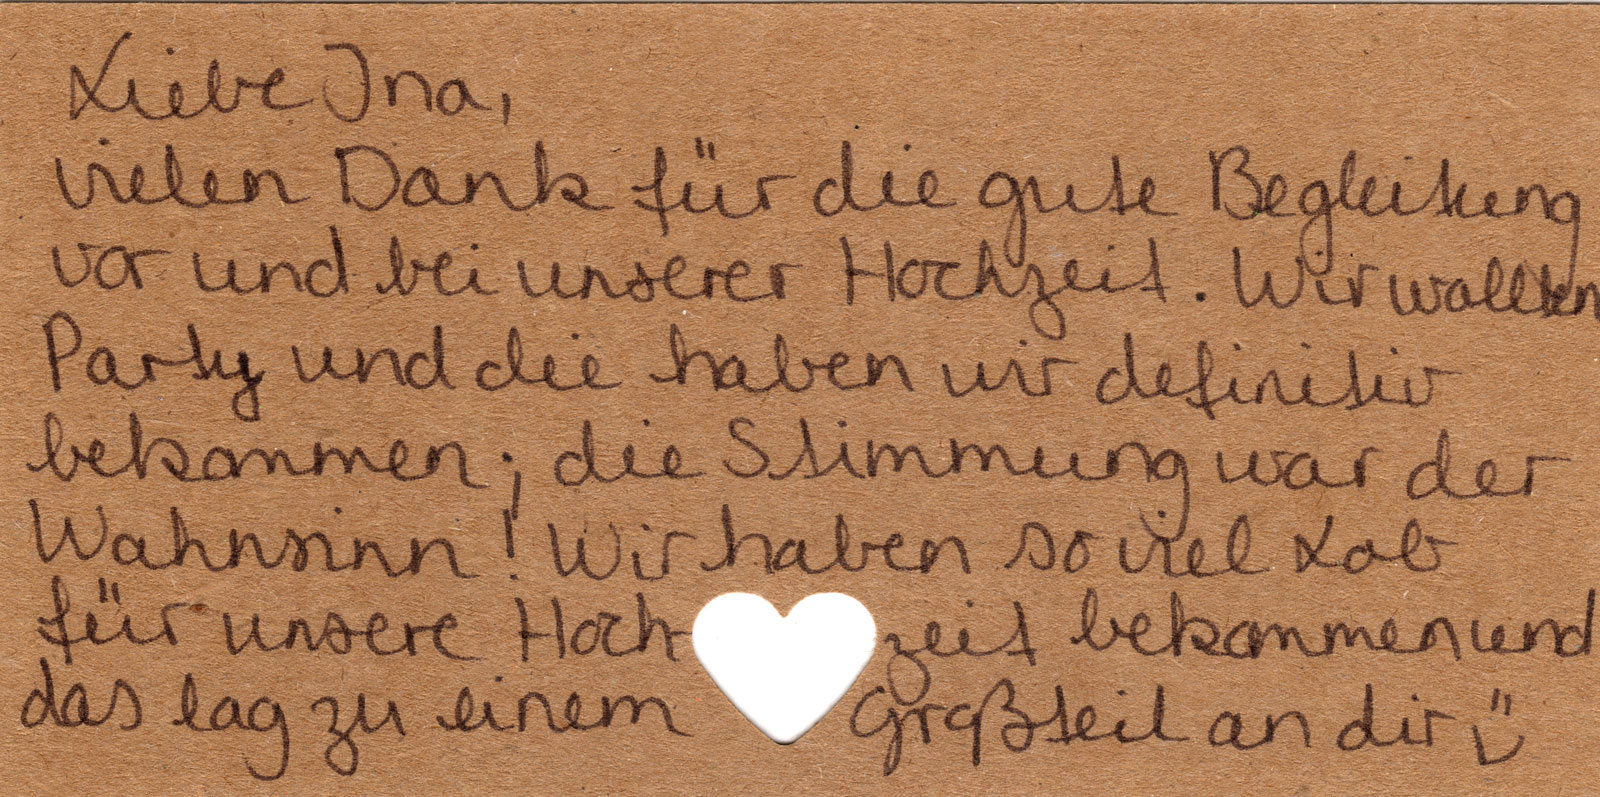 Liebe Ina,
vielen Dank für die gute Begleitung
vor und bei unserer Hochzeit. Wir wollten
Party und die haben wir definitiv
bekommen; die Stimmung war der
Wahnsinn! Wir haben so viel Lob
für unsere Hochzeit bekommen und
das lag zu einem Großteil an dir